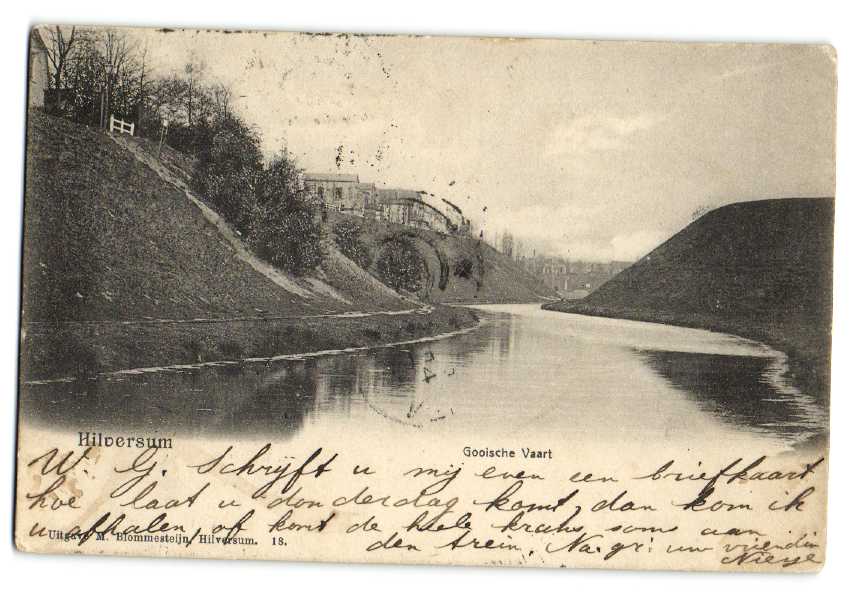 Hilversum
Gooische Vaart
W. G. Schrijft u mij even een briefkaart
hoe laat u donderdag komt, dan kom ik
u afhalen, of komt de hele krans soms aan
den trein, Na. gr. uw vriendin
Uitgave M. Blommesteijn, Hilversum. 18.